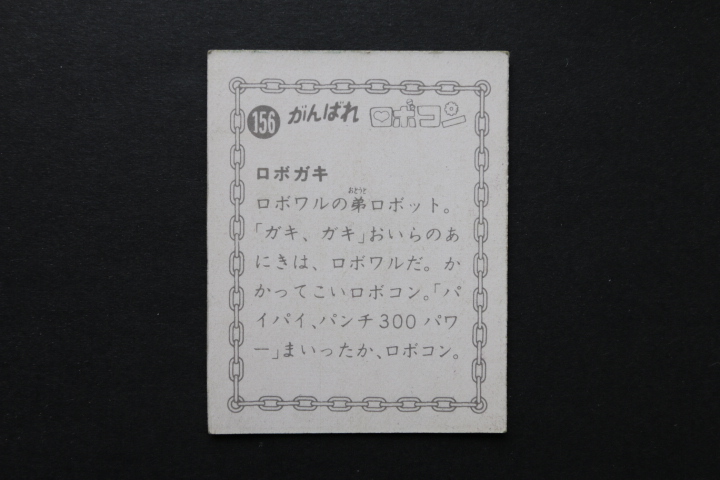 156 がんばれ ロボコン
ロボガキ
ロボワルの弟ロボット。
おとうと
「ガキ、ガキ」おいらのあ
にきは、ロボワルだ。か
かってこいロボコン。「パ
イパイ、パンチ300パワ
ー」まいったか、ロボコン。